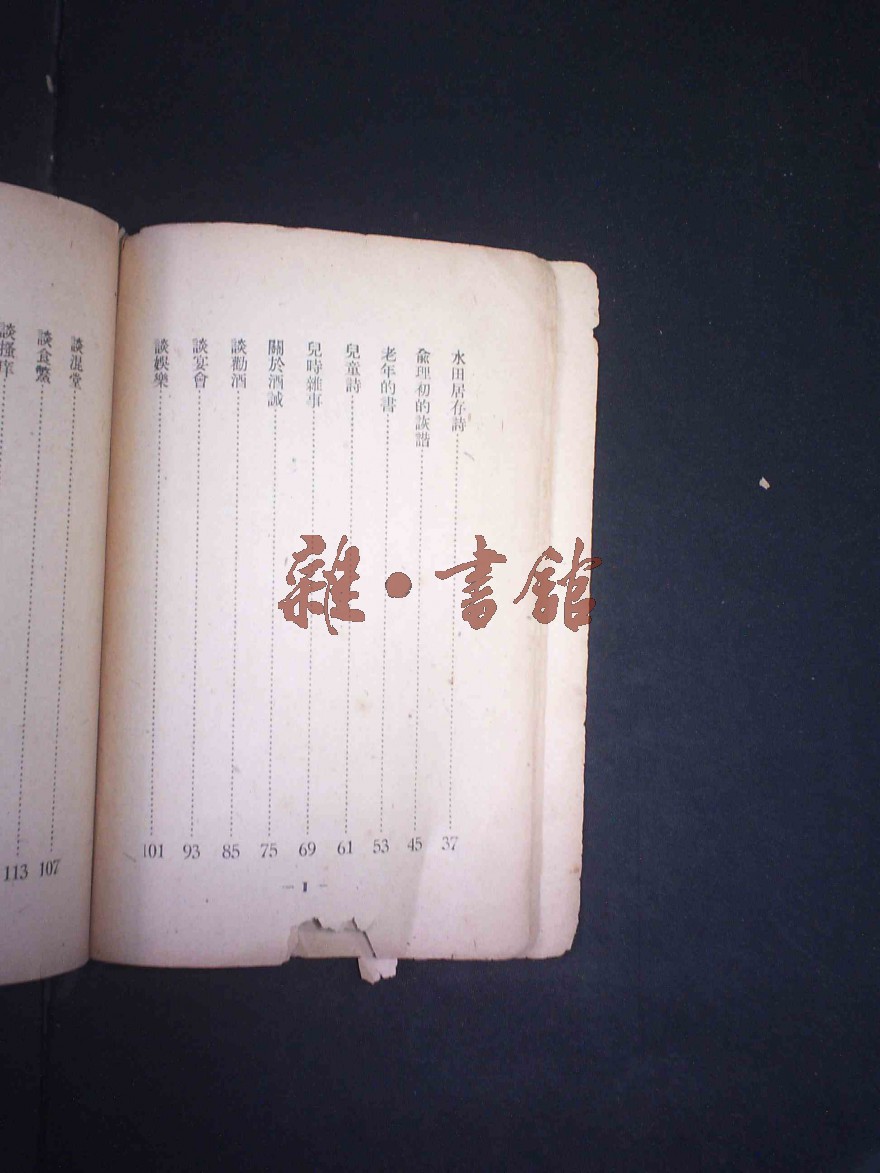 水田居存詩 37
俞理初的詼諧 45
老年的書 53
兒童詩 61
兒時雜事 69
關於酒誡 75
談勸酒 85
談宴會 93
談娛樂 101
談混堂 107
談食鱉 113
談搔痒
雜·書館